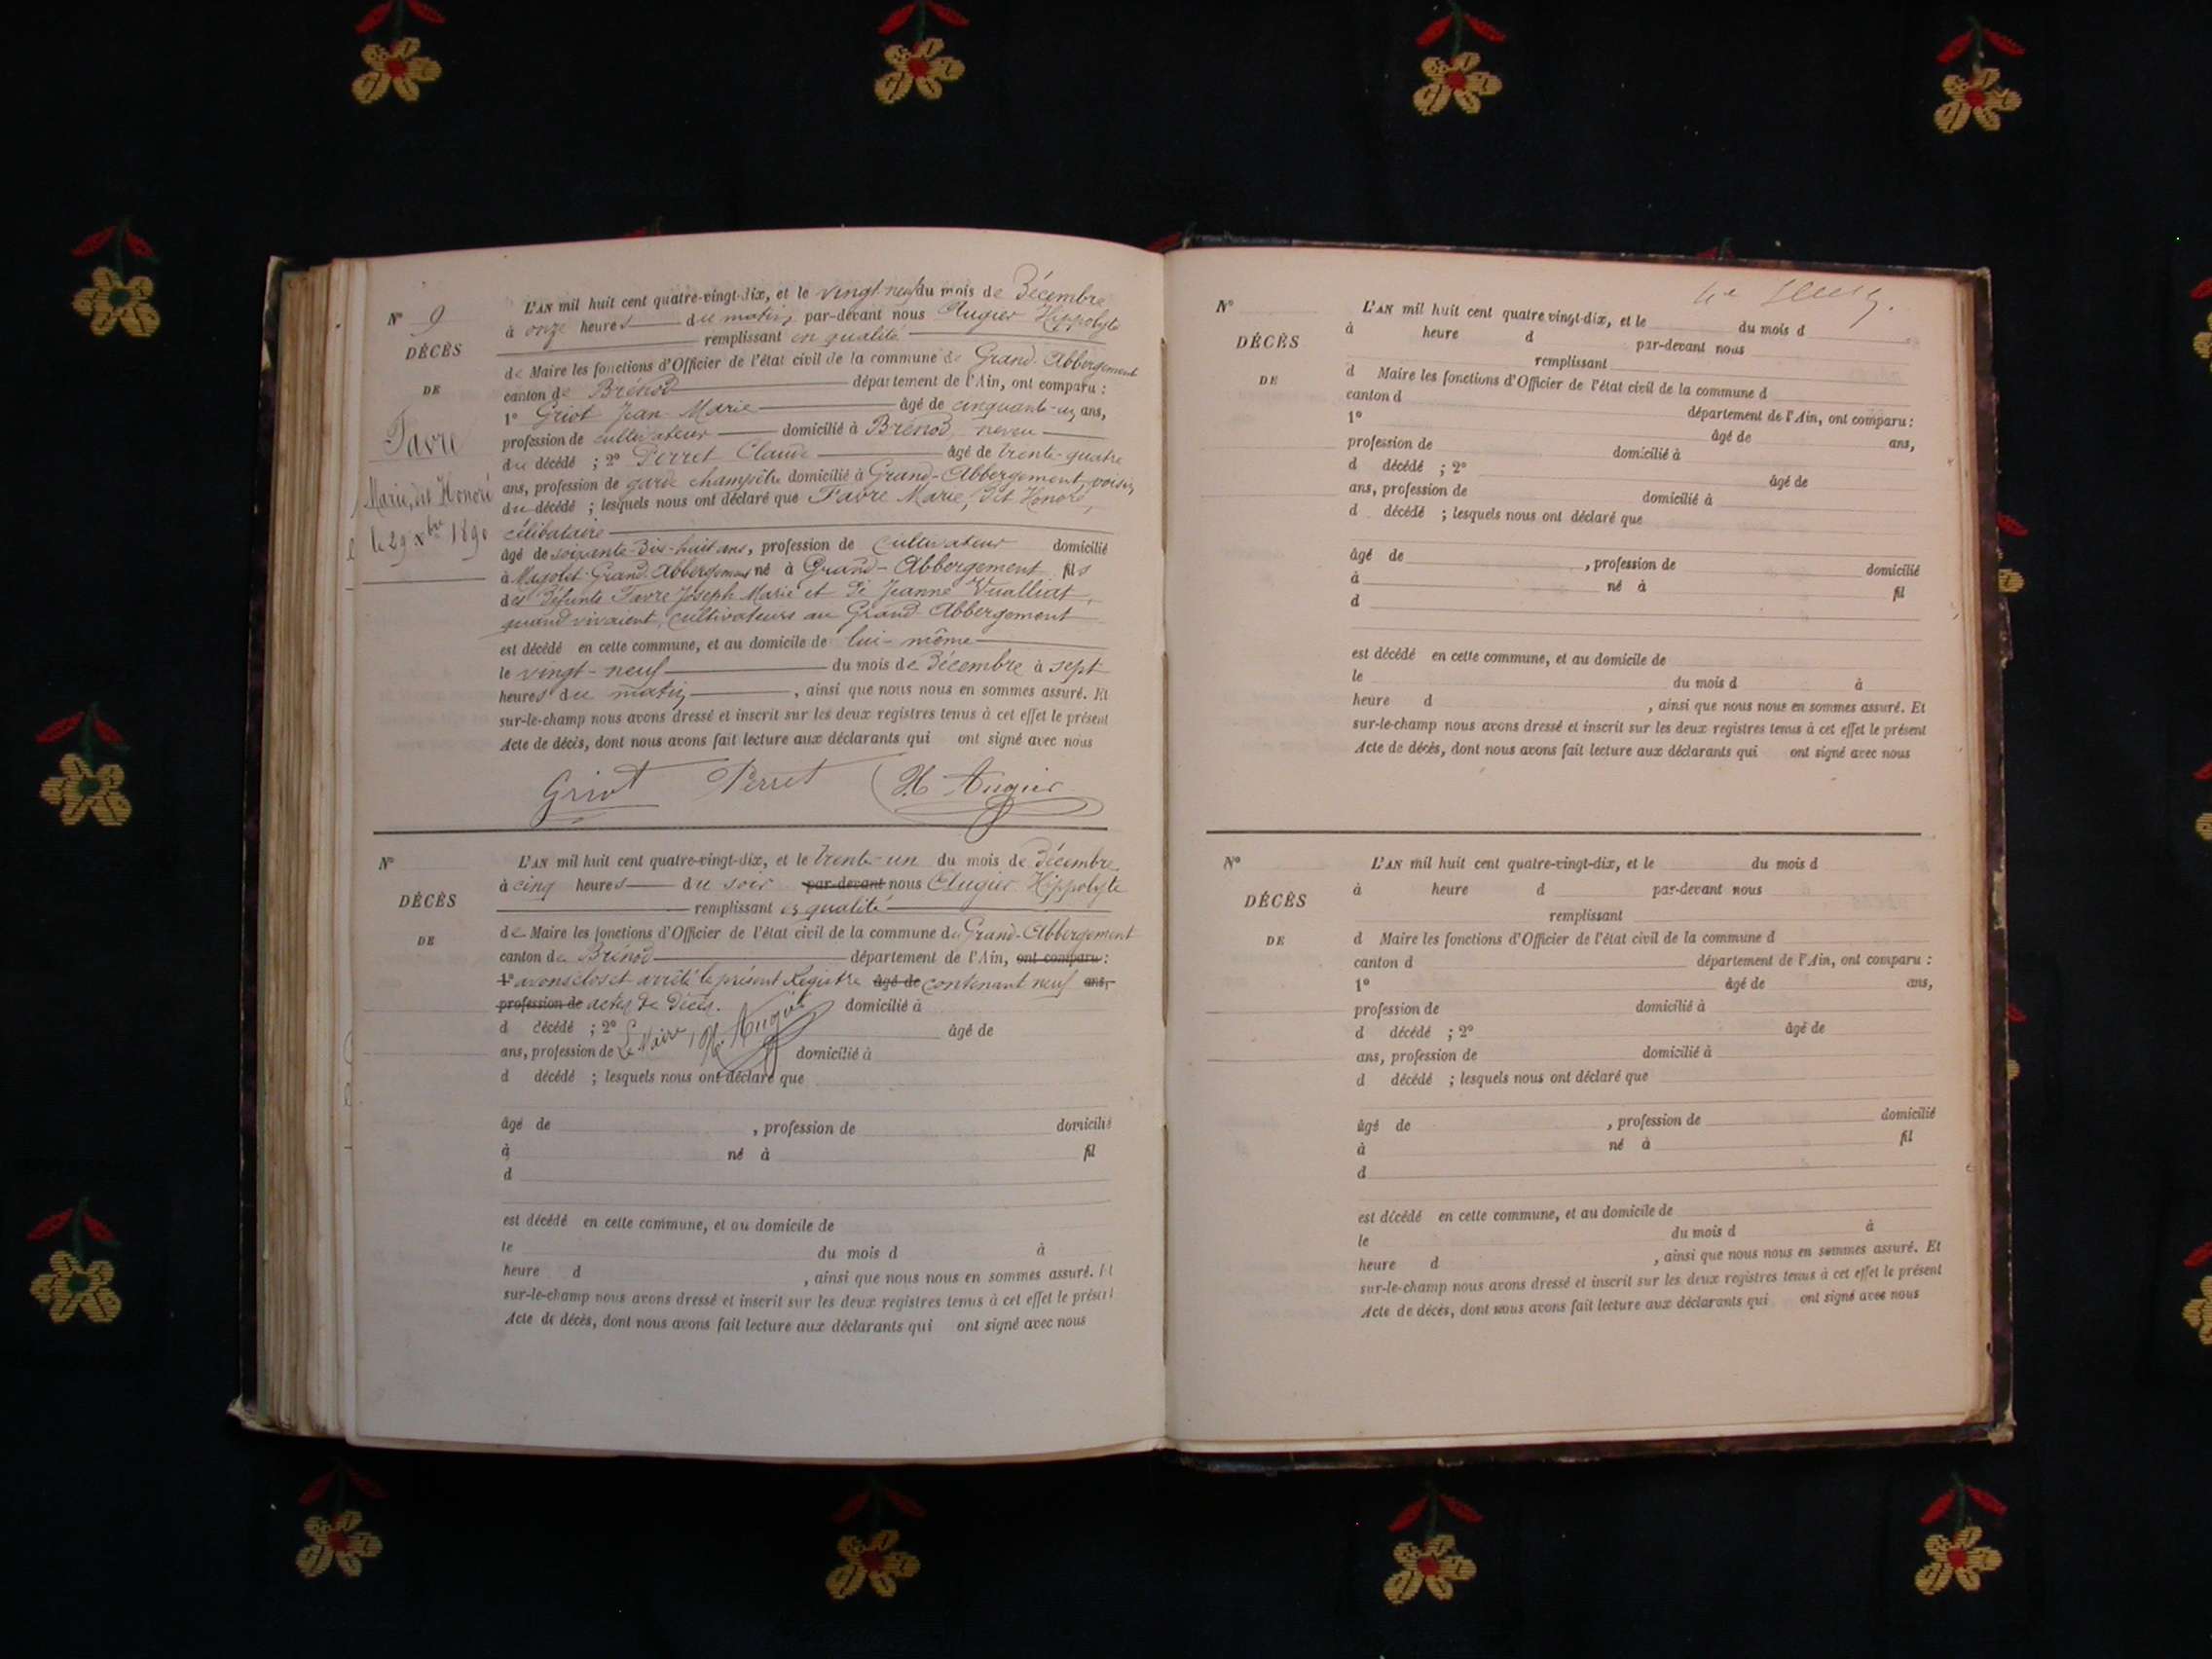 L'AN mil huit cent quatre-vingt-dix, et le vingt-neuf du mois de Décembre
N° 9
à onze heures du matin par-devant nous Augier Hippolyte
remplissant en qualité
DÉCÈS
de Maire les fonctions d'Officier de l'état civil de la commune de Grand-Abbergement
DE
canton de Brénod département de l'Ain, ont comparu :
1° Griot Jean Marie âgé de cinquante-un ans,
Favre
profession de cultivateur domicilié à Brénod, neveu
du décédé ; 2° Perret Claude âgé de trente-quatre
Marie, dit Honoré
ans, profession de garde champêtre domicilié à Grand-Abbergement, voisin
du décédé ; lesquels nous ont déclaré que Favre Marie, dit Honoré,
le 29 Xbre 1890
célibataire
âgé de soixante-dix-huit ans, profession de cultivateur domicilié
à Grand-Abbergement né à Grand-Abbergement fils
des défunts Favre Joseph Marie et de Jeanne Vualliat,
quand vivaient, cultivateurs au Grand Abbergement
est décédé en cette commune, et au domicile de lui-même
le vingt-neuf du mois de Décembre à sept
heures du matin, ainsi que nous nous en sommes assuré. Et
sur-le-champ nous avons dressé et inscrit sur les deux registres tenus à cet effet le présent
Acte de décès, dont nous avons fait lecture aux déclarants qui ont signé avec nous
Griot Perret H Augier
N° L'AN mil huit cent quatre-vingt-dix, et le trente-un du mois de Décembre
à cinq heures du soir par-devant nous Augier Hippolyte
DÉCÈS
remplissant es qualité
de Maire les fonctions d'Officier de l'état civil de la commune du Grand-Abbergement
DE
canton de Brénod département de l'Ain, ont comparu :
1° avons clos et arrêté le présent Registre âgé de contenant neuf ans,
profession de actes de Décès. domicilié à
d décédé ; 2° Le Maire, H. Augier âgé de
ans, profession de domicilié à
d décédé ; lesquels nous ont déclaré que
âgé de , profession de domicilié
à né à fil
d
est décédé en cette commune, et au domicile de
le du mois d à
heure d , ainsi que nous nous en sommes assuré. Et
sur-le-champ nous avons dressé et inscrit sur les deux registres tenus à cet effet le présent
Acte de décès, dont nous avons fait lecture aux déclarants qui ont signé avec nous
N° L'AN mil huit cent quatre vingt-dix, et le du mois d
à heure d par-devant nous
DÉCÈS
remplissant
d Maire les fonctions d'Officier de l'état civil de la commune d
DE
canton d département de l'Ain, ont comparu :
1° âgé de ans,
profession de domicilié à
d décédé ; 2° âgé de
ans, profession de domicilié à
d décédé ; lesquels nous ont déclaré que
âgé de , profession de domicilié
à né à fil
d
est décédé en cette commune, et au domicile de
le du mois d à
heure d , ainsi que nous nous en sommes assuré. Et
sur-le-champ nous avons dressé et inscrit sur les deux registres tenus à cet effet le présent
Acte de décès, dont nous avons fait lecture aux déclarants qui ont signé avec nous
N° L'AN mil huit cent quatre-vingt-dix, et le du mois d
à heure d par-devant nous
DÉCÈS
remplissant
d Maire les fonctions d'Officier de l'état civil de la commune d
DE
canton d département de l'Ain, ont comparu :
1° âgé de ans,
profession de domicilié à
d décédé ; 2° âgé de
ans, profession de domicilié à
d décédé ; lesquels nous ont déclaré que
âgé de , profession de domicilié
à né à fil
d
est décédé en cette commune, et au domicile de
le du mois d à
heure d , ainsi que nous nous en sommes assuré. Et
sur-le-champ nous avons dressé et inscrit sur les deux registres tenus à cet effet le présent
Acte de décès, dont nous avons fait lecture aux déclarants qui ont signé avec nous